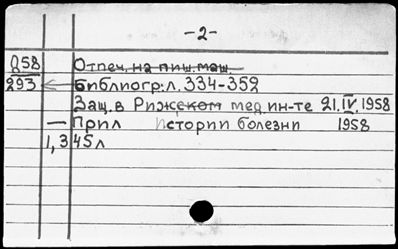 -2-
058 Отпеч. на пиш. маш.
293 Библиогр: л. 334-352
Защ. в Рижском мед. ин-те 21.IV.1958
— Прил Истории болезни 1958
1,345л